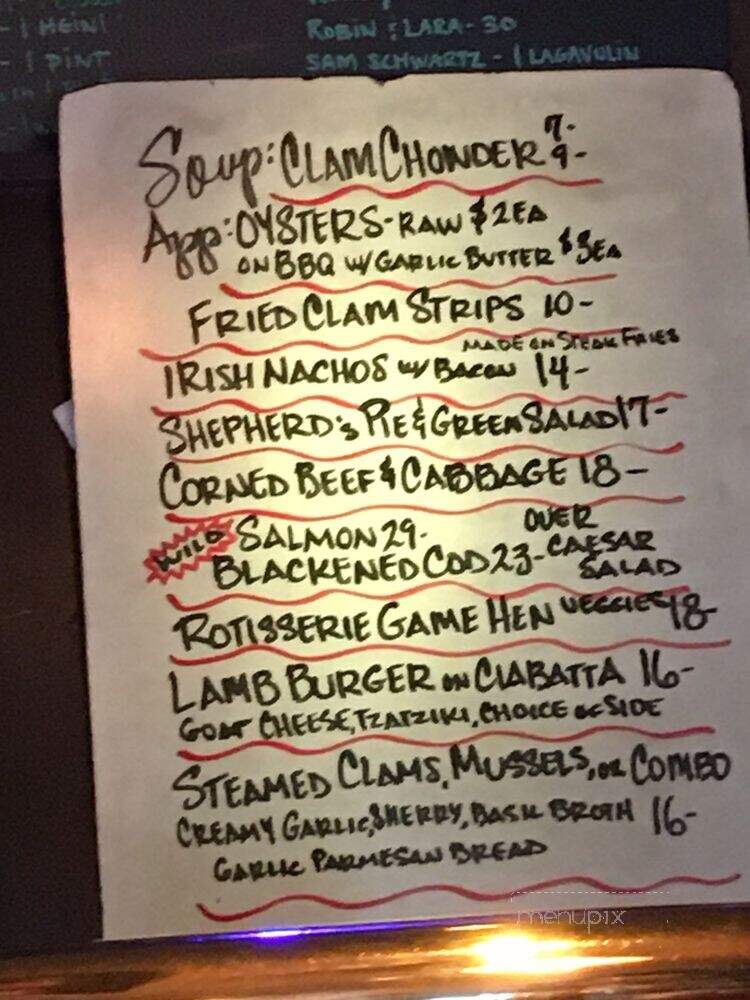 - 1 HEINI
ROBIN & LARA - 30
- 1 PINT
SAM SCHWARTZ - 1 LAGAVULIN
Soup: CLAM CHOWDER 7-
9-
App: OYSTERS - RAW $2EA
ON BBQ W/ GARLIC BUTTER $3EA
FRIED CLAM STRIPS 10-
MADE ON STEAK FRIES
IRISH NACHOS W/ BACON 14-
SHEPHERD'S PIE & GREEN SALAD 17-
CORNED BEEF & CABBAGE 18-
WILD SALMON 29-
BLACKENED COD 23- OVER CAESAR SALAD
ROTISSERIE GAME HEN VEGGIES 18-
LAMB BURGER ON CIABATTA 16-
GOAT CHEESE, TZATZIKI, CHOICE OF SIDE
STEAMED CLAMS, MUSSELS, OR COMBO
CREAMY GARLIC, SHERRY, BASIL BROTH 16-
GARLIC PARMESAN BREAD
menupix